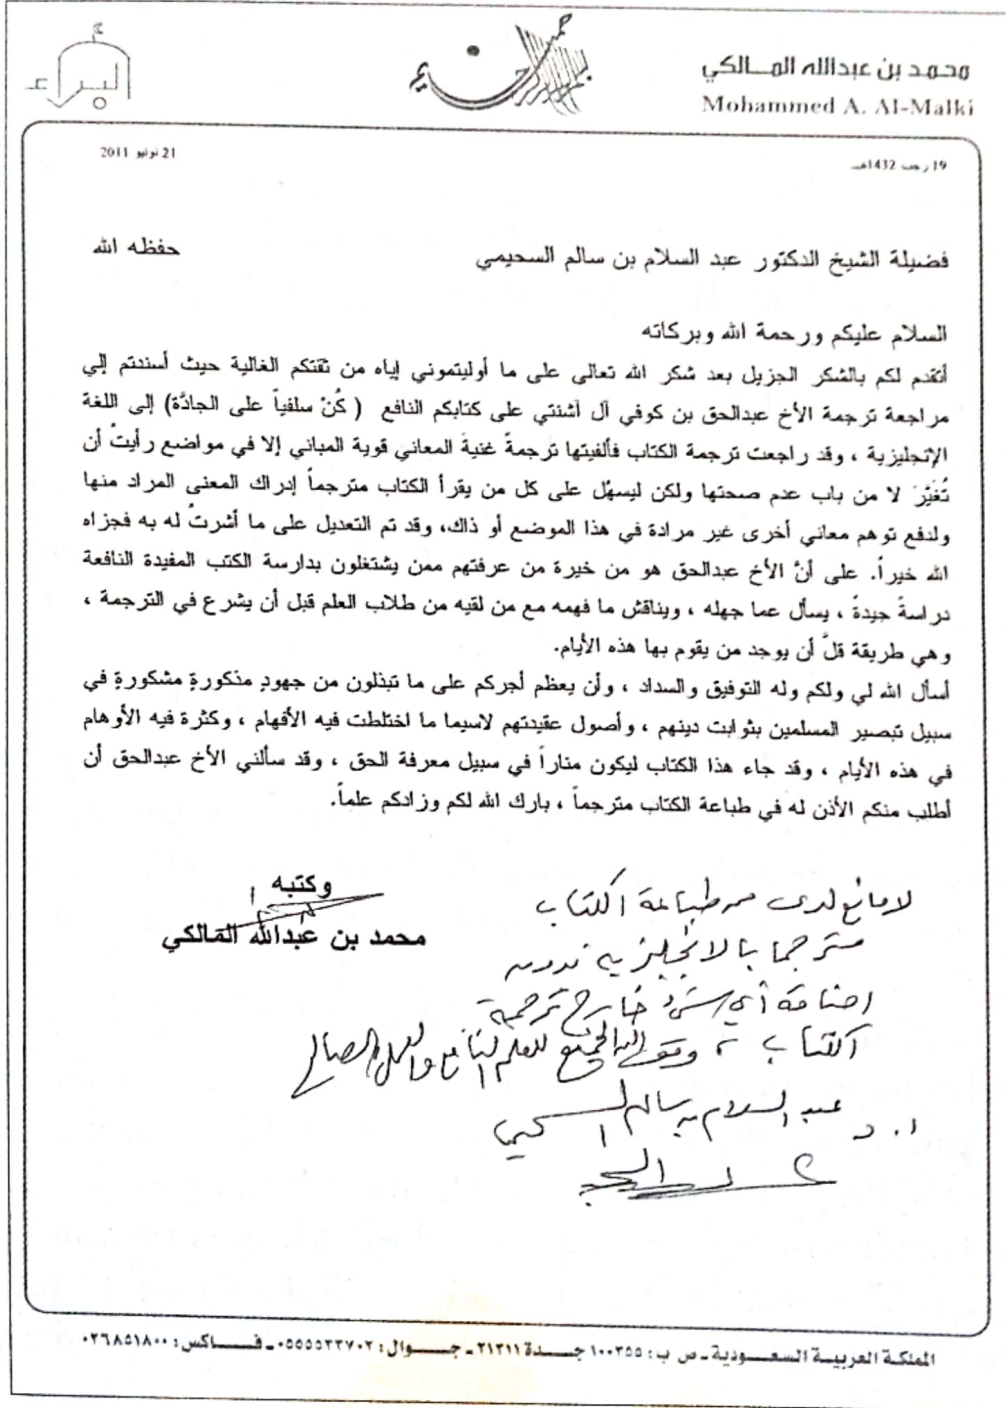 محمد بن عبدالله المالكي
Mohammed A. Al-Malki
البراء
19 رجب 1432هـ
21 يونيو 2011
فضيلة الشيخ الدكتور عبد السلام بن سالم السحيمي حفظه الله
السلام عليكم ورحمة الله وبركاته
أتقدم لكم بالشكر الجزيل بعد شكر الله تعالى على ما أوليتموني إياه من ثقتكم الغالية حيث أسندتم إلي
مراجعة ترجمة الأخ عبدالحق بن كوفي آل آشنتي على كتابكم النافع ( كُنْ سلفياً على الجادَّة) إلى اللغة
الإنجليزية ، وقد راجعت ترجمة الكتاب فألفيتها ترجمةً غنيةَ المعاني قوية المباني إلا في مواضع رأيتُ أن
تُغَيَّرَ لا من باب عدم صحتها ولكن ليسهُل على كل من يقرأ الكتاب مترجماً إدراك المعنى المراد منها
ولدفع توهم معاني أخرى غير مرادة في هذا الموضع أو ذاك، وقد تم التعديل على ما أشرتُ له به فجزاه
الله خيراً. على أنَّ الأخ عبدالحق هو من خيرة من عرفتهم ممن يشتغلون بدارسة الكتب المفيدة النافعة
دراسةً جيدةً ، يسأل عما جهله ، ويناقش ما فهمه مع من لقيه من طلاب العلم قبل أن يشرع في الترجمة ،
وهي طريقة قلَّ أن يوجد من يقوم بها هذه الأيام.
أسأل الله لي ولكم وله التوفيق والسداد ، وأن يعظم أجركم على ما تبذلون من جهودٍ مذكورةٍ مشكورةٍ في
سبيل تبصير المسلمين بثوابت دينهم ، وأصول عقيدتهم لاسيما ما اختلطت فيه الأفهام ، وكثرة فيه الأوهام
في هذه الأيام ، وقد جاء هذا الكتاب ليكون مناراً في سبيل معرفة الحق ، وقد سألني الأخ عبدالحق أن
أطلب منكم الأذن له في طباعة الكتاب مترجماً ، بارك الله لكم وزادكم علماً.
وكتبه
محمد بن عبدالله المالكي
لا مانع لدى من طباعة الكتاب
مترجما بالانجليزية بدون
اضافة أي شيء خارج ترجمة
الكتاب ، وفق الله الجميع للعلم النافع والعمل الصالح
ا. د عبد السلام بن سالم السحيمي
المملكة العربية السعودية ـ ص ب : ١٠٠٣٥٥ جدة ٢١٣١١ ـ جوال : ٠٥٥٥٥٣٣٧٠٢ ـ فاكس : ٠٢٦٨٥١٨٠٠